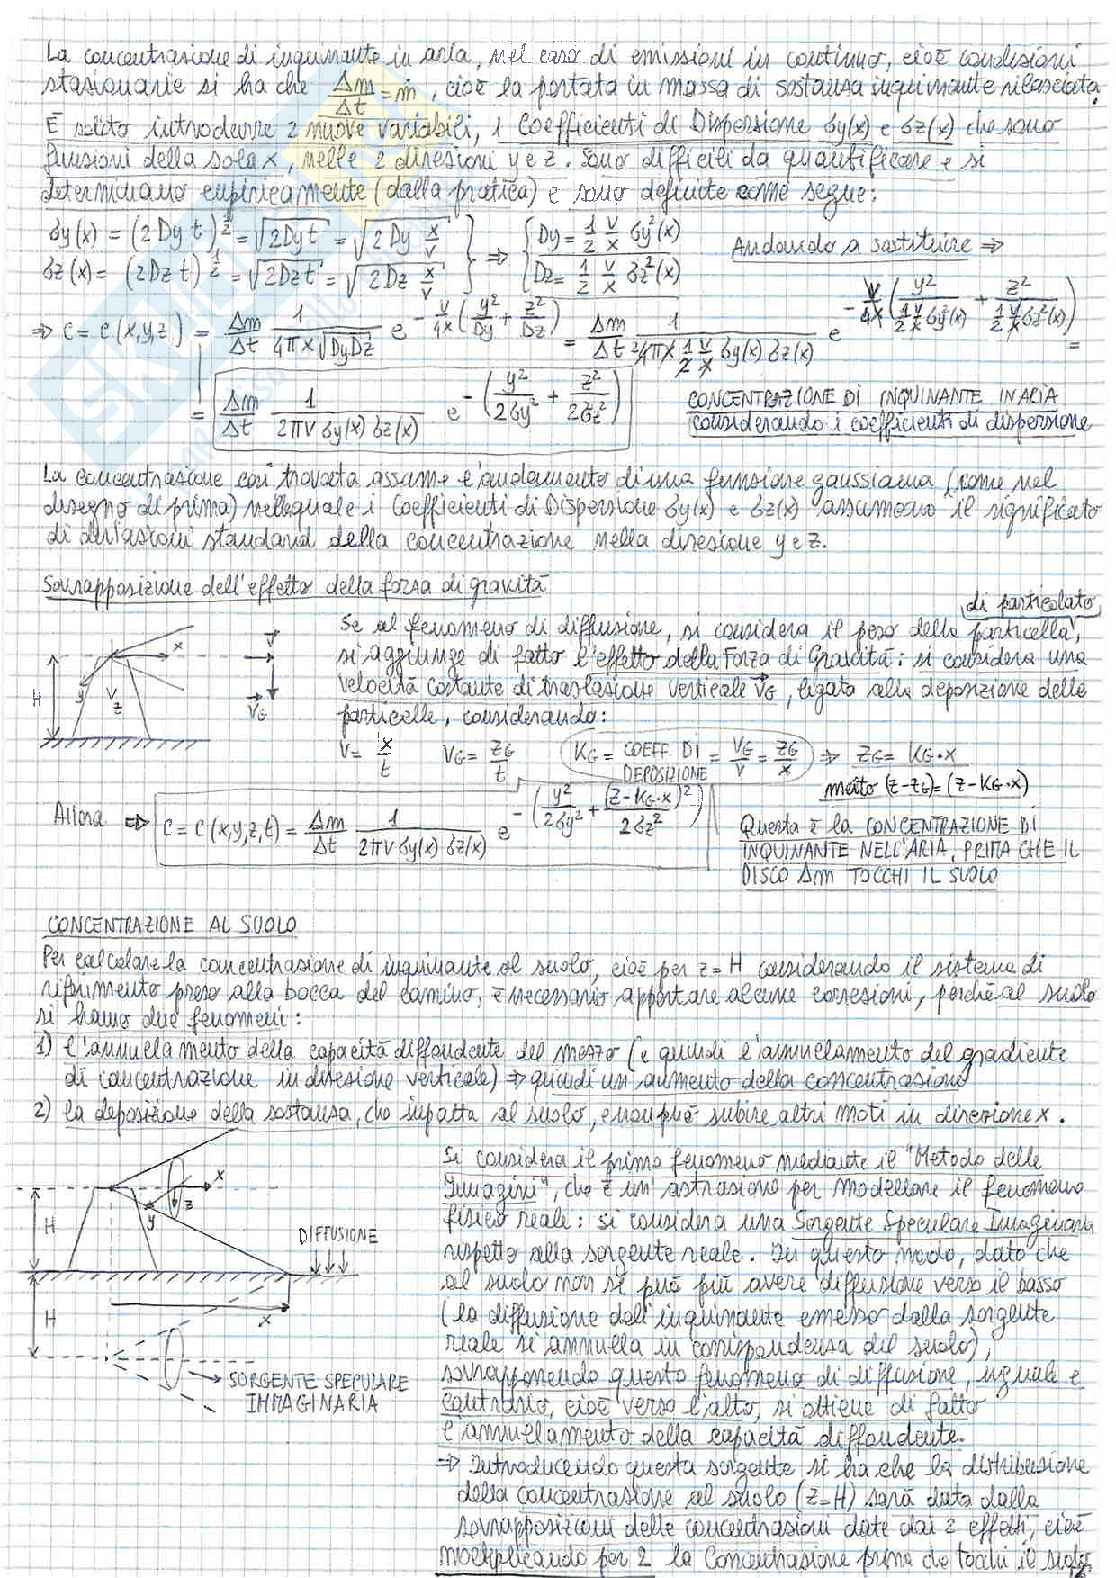 La concentrazione di inquinante in aria, nel caso di emissioni in continuo, cioè condizioni
stazionarie si ha che Δm/Δt = ṁ, cioè la portata in massa di sostanza inquinante rilasciata.
È solito introdurre 2 nuove variabili, i Coefficienti di Dispersione σy(x) e σz(x) che sono
funzioni della sola x, nelle 2 direzioni y e z. Sono difficili da quantificare e si
determinano empiricamente (dalla pratica) e sono definite come segue:
σy(x) = (2Dy t)^1/2 = √(2Dy t) = √(2Dy x/v) } ⇒ { Dy = 1/2 v/x σy²(x)
σz(x) = (2Dz t)^1/2 = √(2Dz t) = √(2Dz x/v) } { Dz = 1/2 v/x σz²(x)
Andando a sostituire ⇒
⇒ c = c(x,y,z) = Δm/Δt 1/(4πx√(DyDz)) e^(-v/4x (y²/Dy + z²/Dz)) = Δm/Δt 1/(4πx 1/2 v/x σy(x) σz(x)) e^(-v/4x (y²/(1/2 v/x σy²(x)) + z²/(1/2 v/x σz²(x)))) =
= Δm/Δt 1/(2πv σy(x) σz(x)) e^(-(y²/2σy² + z²/2σz²))
CONCENTRAZIONE DI INQUINANTE IN ARIA
considerando i coefficienti di dispersione
La concentrazione così trovata assume l'andamento di una funzione gaussiana (come nel
disegno di prima) nella quale i Coefficienti di Dispersione σy(x) e σz(x) assumono il significato
di deviazioni standard della concentrazione nella direzione y e z.
Sovrapposizione dell'effetto della forza di gravità
di particolato
Se al fenomeno di diffusione, si considera il peso della particella,
si aggiunge di fatto l'effetto della Forza di Gravità: si considera una
velocità costante di traslazione verticale vG, legata alla deposizione delle
particelle, considerando:
H
x
y
z
v
vG
v = x/t vG = zG/t KG = COEFF DI DEPOSIZIONE = vG/v = zG/x ⇒ zG = KG·x
metto (z-zG) = (z-KG·x)
Allora ⇒ c = c(x,y,z,t) = Δm/Δt 1/(2πv σy(x) σz(x)) e^(-(y²/2σy² + (z-KG·x)²/2σz²))
Questa è la CONCENTRAZIONE DI
INQUINANTE NELL'ARIA, PRIMA CHE IL
DISCO Δm TOCCHI IL SUOLO
CONCENTRAZIONE AL SUOLO
Per calcolare la concentrazione di inquinante al suolo, cioè per z=H considerando il sistema di
riferimento preso alla bocca del camino, è necessario apportare alcune correzioni, perchè al suolo
si hanno due fenomeni:
1) l'annullamento della capacità diffondente del mezzo (e quindi l'annullamento del gradiente
di concentrazione in direzione verticale) ⇒ quindi un aumento della concentrazione
2) la deposizione della sostanza, che impatta al suolo, e non può subire altri moti in direzione x.
H
H
x
y
z
DIFFUSIONE
x
SORGENTE SPECULARE
IMMAGINARIA
Si considera il primo fenomeno mediante il "Metodo delle
Immagini", che è un'astrazione per modellare il fenomeno
fisico reale: si considera una Sorgente Speculare Immaginaria
rispetto alla sorgente reale. In questo modo, dato che
al suolo non si può più avere diffusione verso il basso
(la diffusione dell'inquinante emesso dalla sorgente
reale si annulla in corrispondenza del suolo),
sovrapponendo questo fenomeno di diffusione, uguale e
contrario, cioè verso l'alto, si ottiene di fatto
l'annullamento della capacità diffondente.
⇒ Introducendo questa sorgente si ha che la distribuzione
della concentrazione al suolo (z=H) sarà data dalla
sovrapposizioni delle concentrazioni date dai 2 effetti, cioè
moltiplicando per 2 la Concentrazione prima che tocchi il suolo